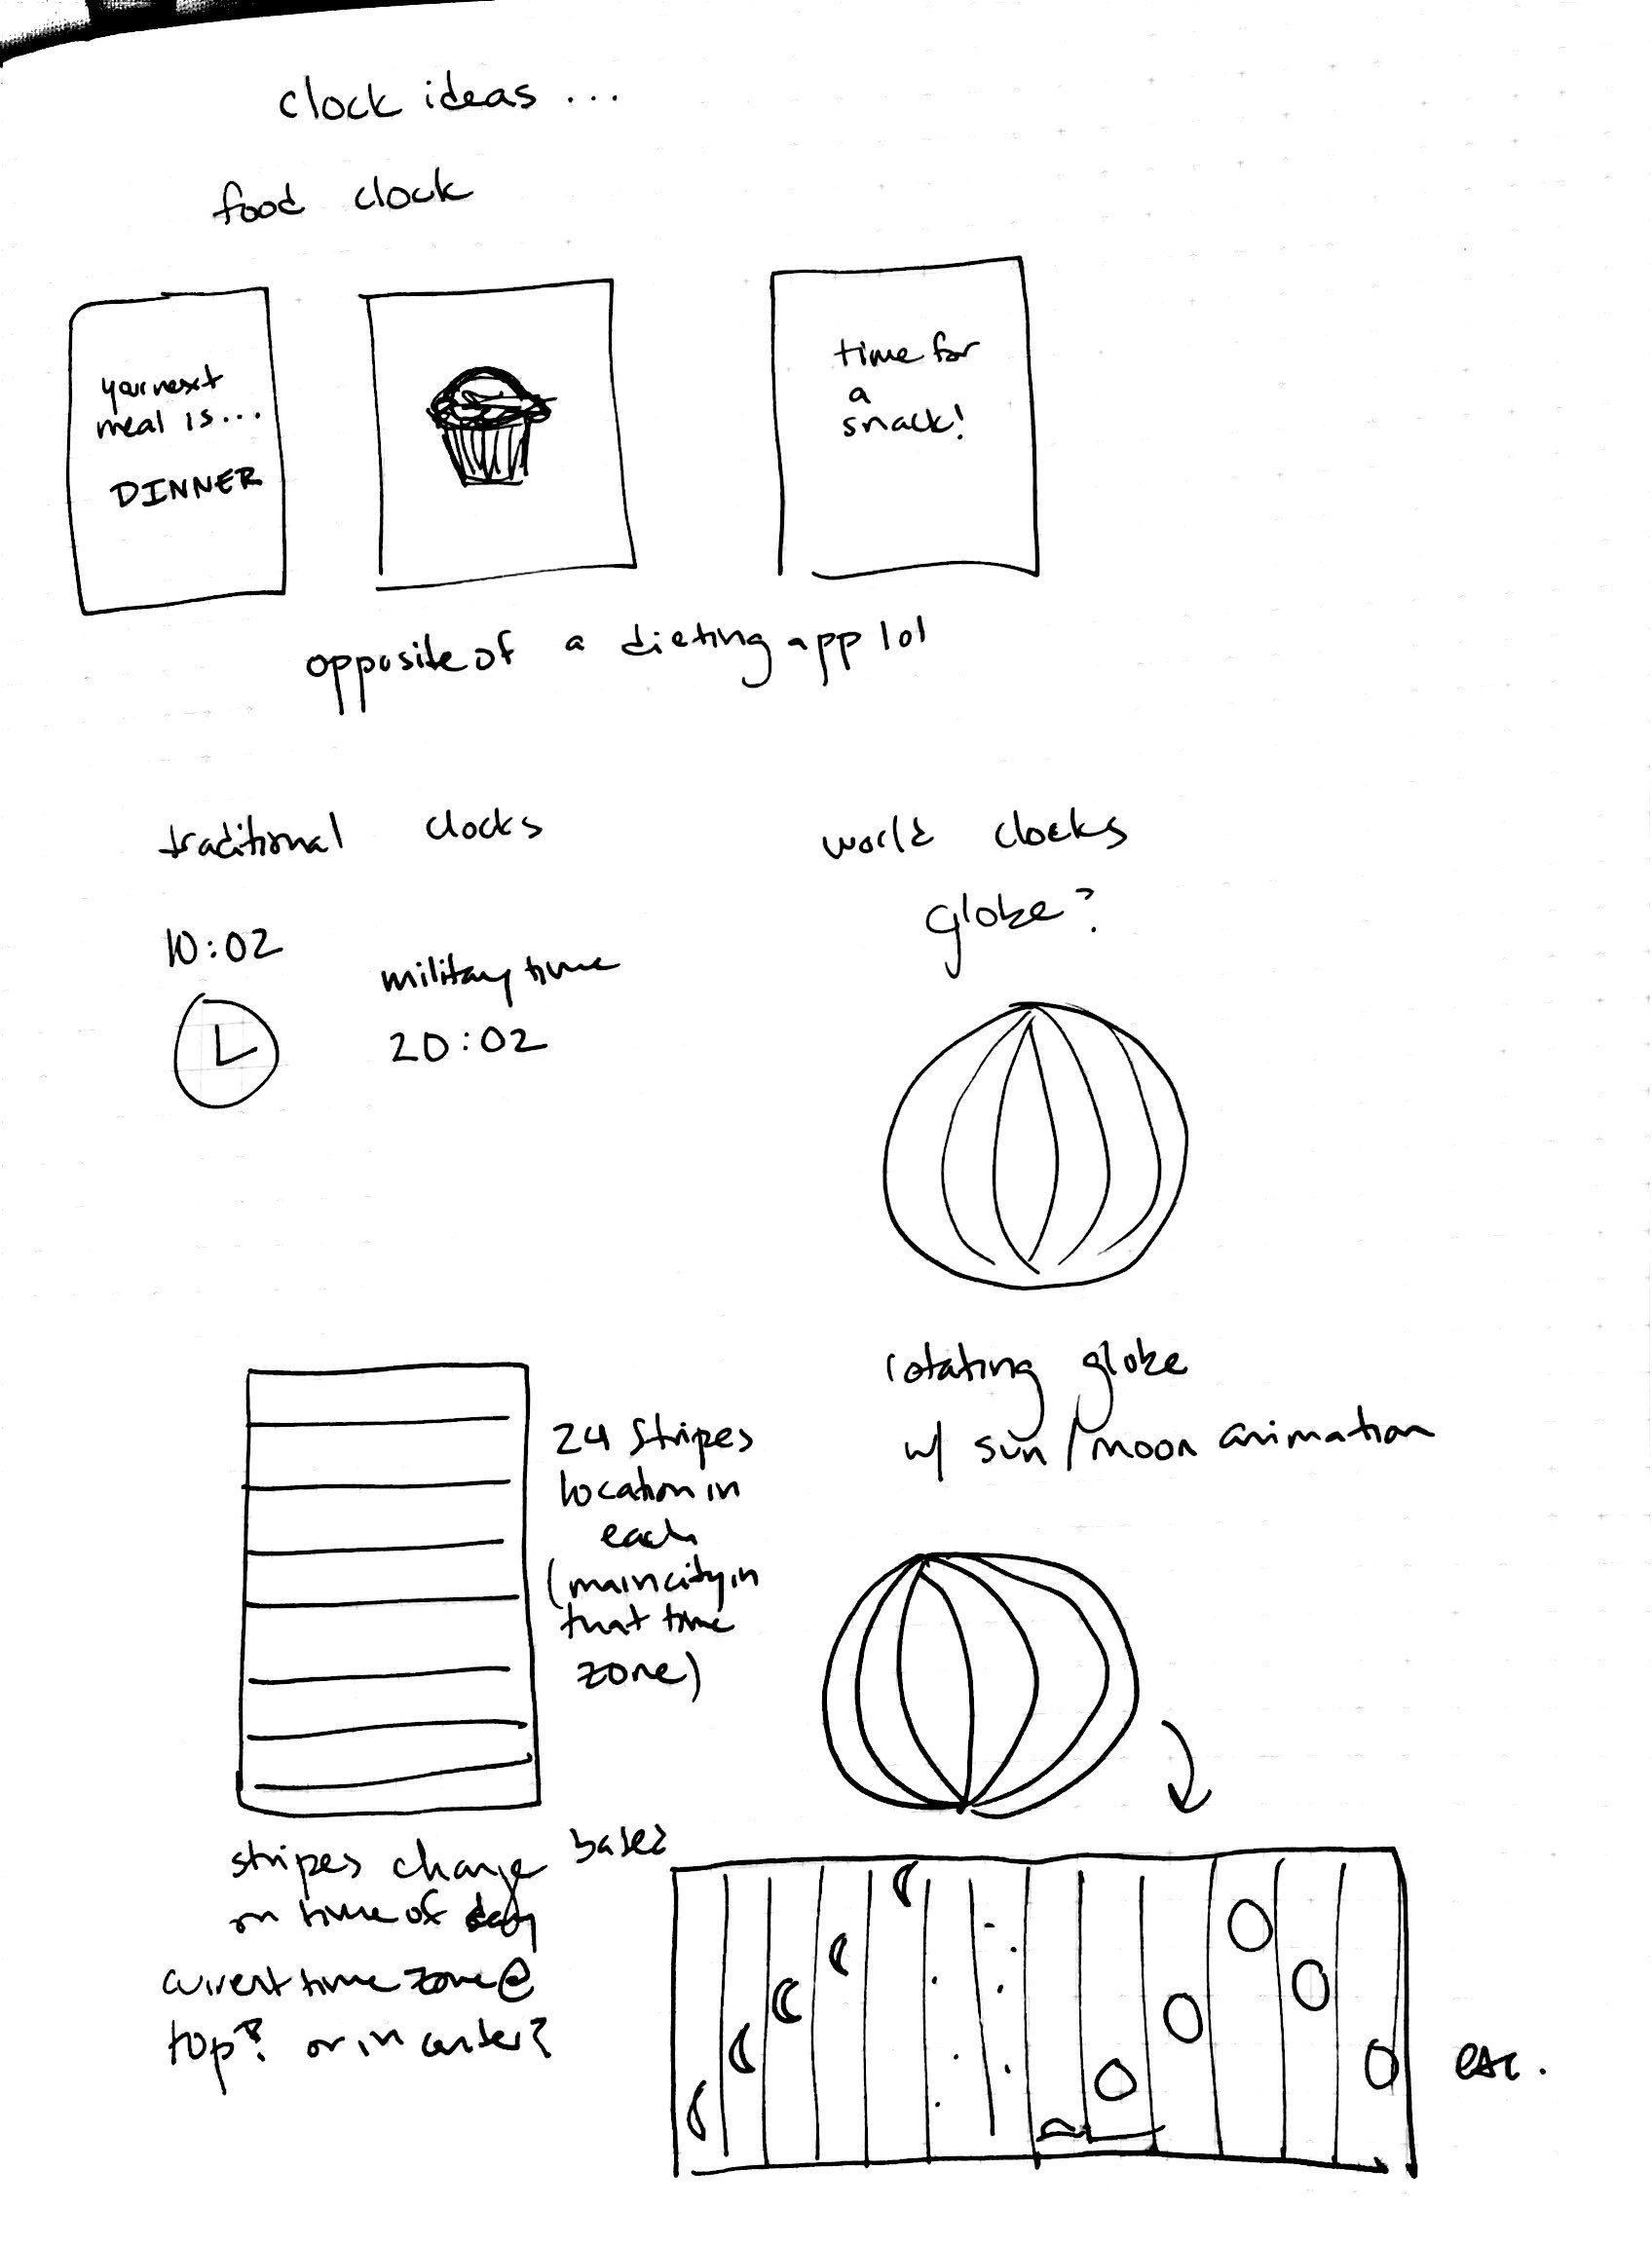 clock ideas ...
food clock
your next
meal is...
DINNER
time for
a
snack!
opposite of a dieting app lol
traditional clocks
10:02
military time
20:02
world clocks
globe?
rotating globe
w/ sun/moon animation
24 stripes
location in
each
(main city in
that time
zone)
stripes change based
on time of day
current time zone @
top? or in center?
etc.